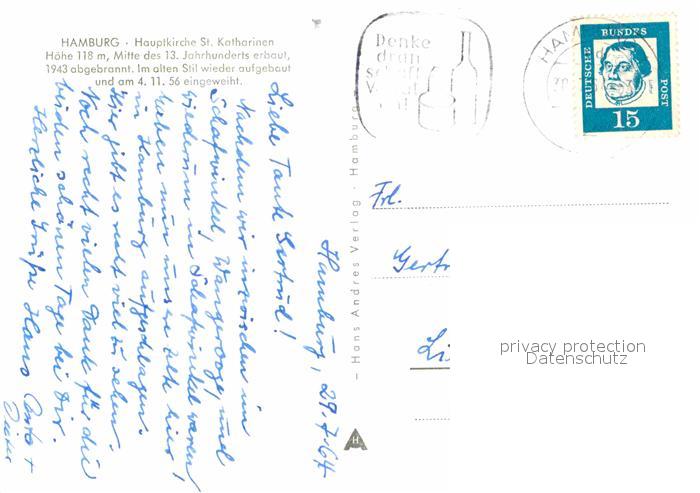 HAMBURG · Hauptkirche St. Katharinen
Höhe 118 m, Mitte des 13. Jahrhunderts erbaut,
1943 abgebrannt. Im alten Stil wieder aufgebaut
und am 4. 11. 56 eingeweiht.
Hamburg, 29.7.64
Liebe Tante Gertrud!
Nachdem wir inzwischen in
Schafwinkel, Wangerooge, und
wiederum in Schafwinkel waren
haben wir nun unsere Zelte hier
in Hamburg aufgeschlagen.
Hier gibt es recht viel zu sehen.
Noch recht vielen Dank für die
beiden schönen Tage bei Dir.
Herzliche Grüße Hans
Dieter
– Hans Andres Verlag · Hamburg
H
Denke
dran
HAM
DEUTSCHE
BUNDES
POST
15
Frl.
Gertr
Li
privacy protection
Datenschutz